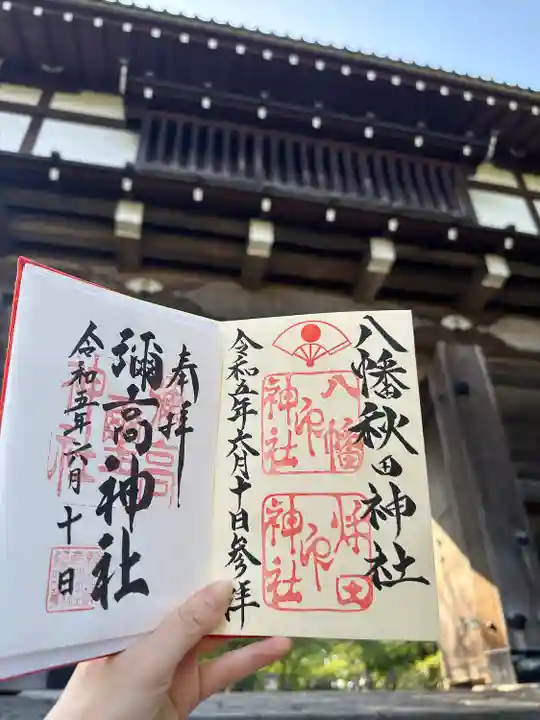 八幡秋田神社
八幡
神社
秋田
神社
令和五年六月十日参拝
奉拝
彌高神社
令和五年六月十日